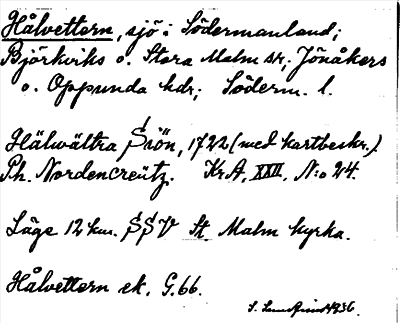 Hålvettern, sjö i Södermanland;
Björkviks o. Stora Malm sn; Jönåkers
o. Oppunda hdr; Söderm. l.
Hälwältra Siön, 1722 (med kartbeskr.)
Ph. Nordencreütz. Kr.A, XXII, N:o 24.
Läge 12 km. SSV St. Malm kyrka.
Hålvettern ek. G.66.
S. 1936.